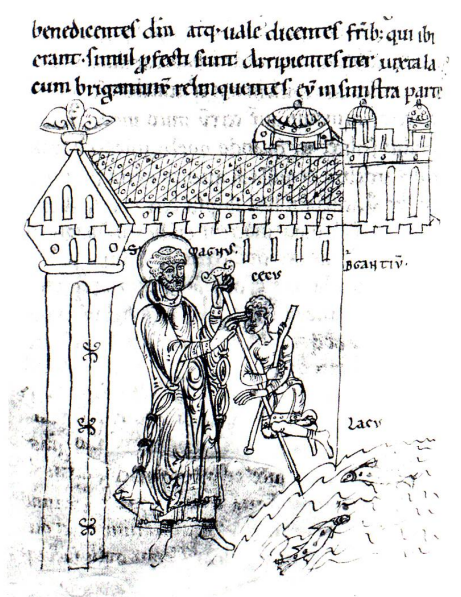 benedicentes dñm atq; uale dicentes frib; qui ibi
erant. simul pfecti sunt Arripientes iter iuxta la
cum brigantinū relinquentes eū in sinistra parte
S MAGNUS.
CECUS
BGANTIŪ.
LACU